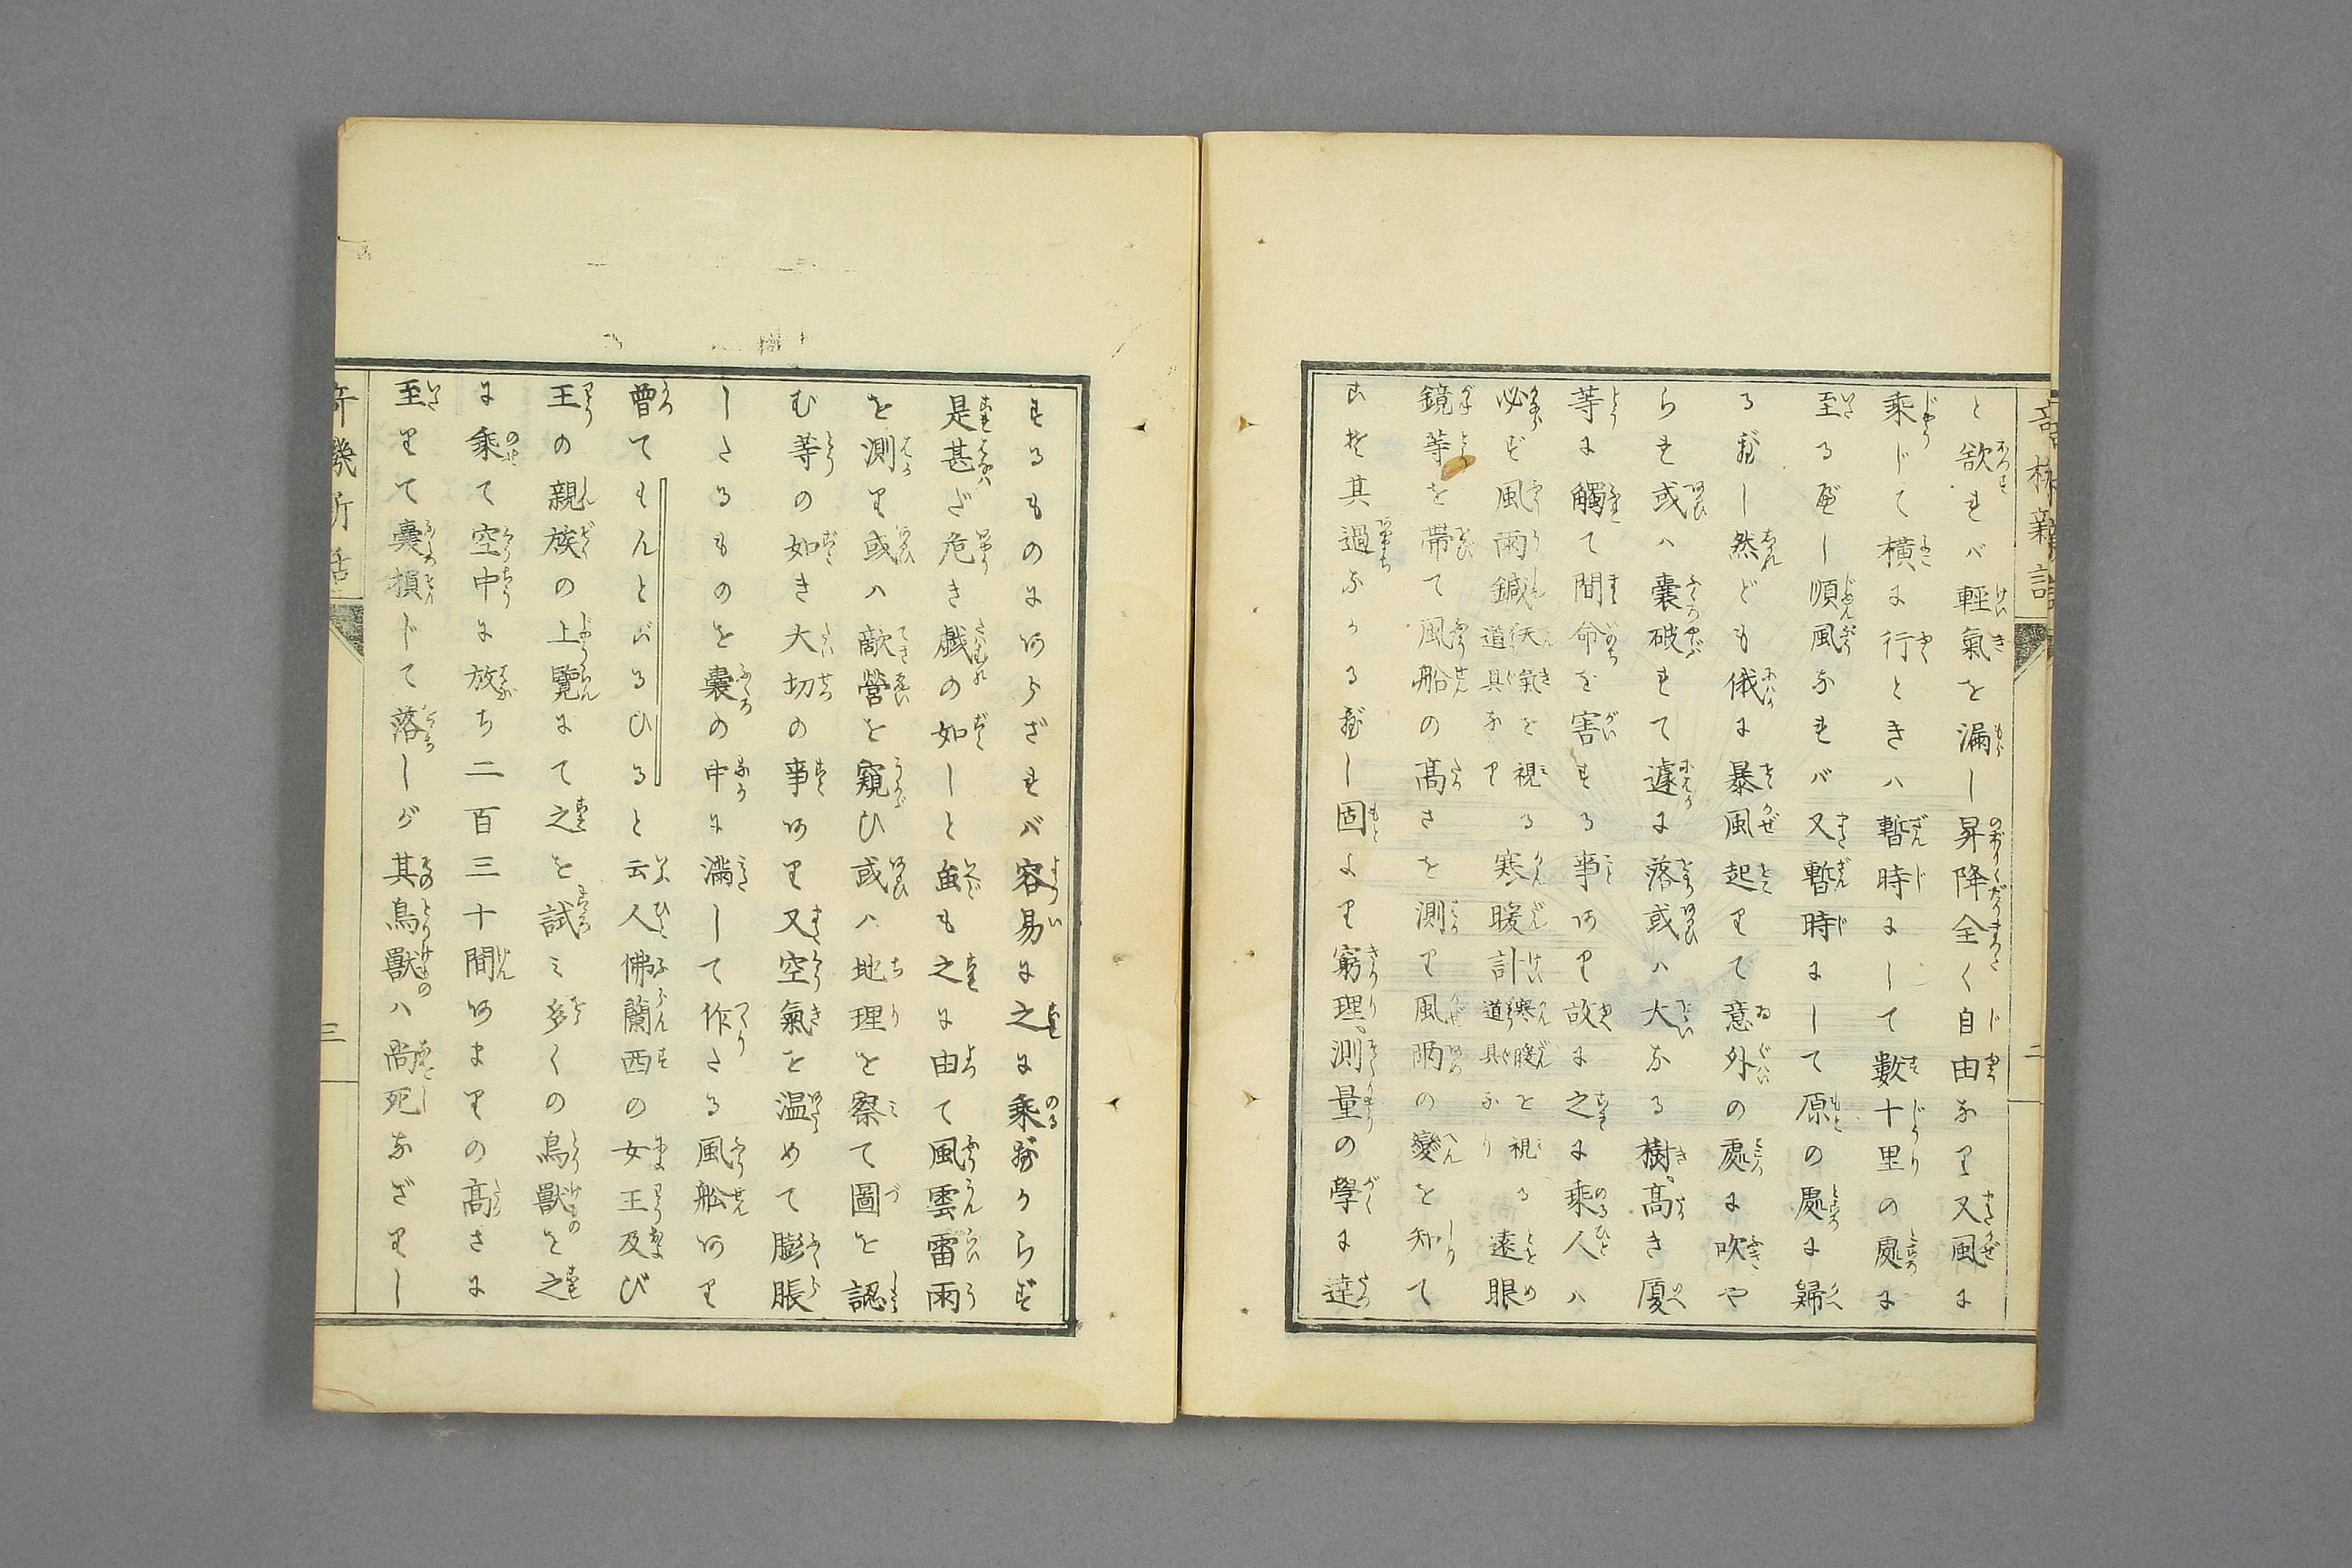 奇機新話
二
と欲れバ輕氣を漏し昇降全く自由なり又風に
乘じて横に行ときハ暫時にして數十里の處に
至るべし順風なれバ又暫時にして原の處に歸
るべし然ども俄に暴風起りて意外の處に吹や
られ或ハ囊破れて遽に落或ハ大なる樹高き厦
等に觸て間命を害する事あり故に之に乘人ハ
必ず風雨鍼天氣を視る道具なり寒暖計寒暖を視る道具なり遠眼
鏡等を帶て風船の高さを測り風雨の變を知て
こそ其過なかるべし固より窮理測量の學に達
するものにあらざれバ容易に之に乘べからず
是甚だ危き戯の如しと雖も之に由て風雲雷雨
を測り或ハ敵營を窺ひ或ハ地理を察て圖を認
む等の如き大切の事あり又空氣を温めて膨脹
したるものを囊の中に滿して作たる風舩あり
曾てもんとごるひると云人佛蘭西の女王及び
王の親族の上覽にて之を試ミ多くの鳥獸を之
に乘て空中に放ち二百三十間あまりの高さに
至りて囊損じて落しが其鳥獸ハ尚死なざりし
奇機新話
三